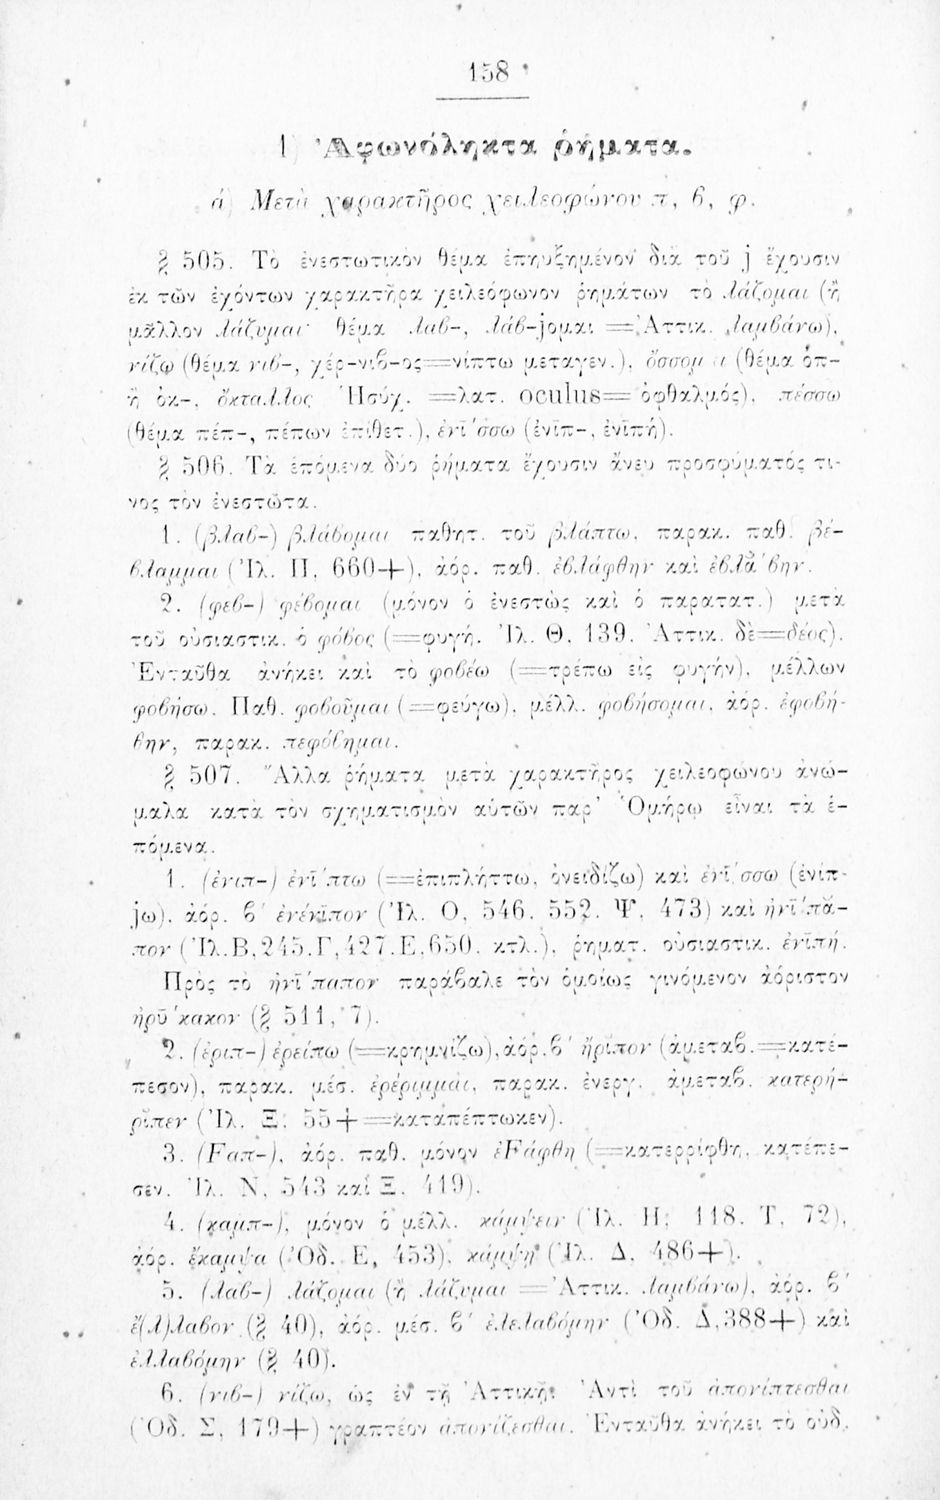 158
1) Ἀφωνόληκτα ῥήματα.
ά) Μετὰ χαρακτῆρος χειλεοφώνου π, β, φ.
§ 505. Τὸ ἐνεστωτικὸν θέμα ἐπηυξημένον διὰ τοῦ j ἔχουσιν
ἐκ τῶν ἐχόντων χαρακτῆρα χειλεόφωνον ῥημάτων τὸ λάζομαι (ἢ
μᾶλλον λάζυμαι· θέμα λαβ-, λάβ-jομαι = Ἀττικ. λαμβάνω),
νίζω (θέμα νιβ-, χέρ-νιβ-ος=νίπτω μεταγεν.), ὄσσομαι (θέμα ὀπ-
ἢ ὀκ-, ὄκταλλος Ἡσύχ. =λατ. oculus= ὀφθαλμός), πέσσω
(θέμα πέπ-, πέπων ἐπίθετ.), ἐνῑ́σσω (ἐνῑπ-, ἐνῑπή).
§ 506. Τὰ ἑπόμενα δύο ῥήματα ἔχουσιν ἄνευ προσφύματός τι-
νος τὸν ἐνεστῶτα.
1. (βλαβ-) βλάβομαι παθητ. τοῦ βλάπτω, παρακ. παθ. βέ-
βλαμμαι (Ἰλ. Π, 660+), ἀόρ. παθ. ἐβλάφθην καὶ ἐβλᾰ́βην.
2. (φεβ-) φέβομαι (μόνον ὁ ἐνεστὼς καὶ ὁ παρατατ.) μετὰ
τοῦ οὐσιαστικ. ὁ φόβος (=φυγή. Ἰλ. Θ, 139. Ἀττικ. δὲ=δέος).
Ἐνταῦθα ἀνήκει καὶ τὸ φοβέω (=τρέπω εἰς φυγήν), μέλλων
φοβήσω. Παθ. φοβοῦμαι (=φεύγω), μέλλ. φοβήσομαι, ἀόρ. ἐφοβή-
θην, παρακ. πεφόβημαι.
§ 507. Ἄλλα ῥήματα μετὰ χαρακτῆρος χειλεοφώνου ἀνώ-
μαλα κατὰ τὸν σχηματισμὸν αὐτῶν παρ' Ὁμήρῳ εἶναι τὰ ἑ-
πόμενα.
1. (ἐνιπ-) ἐνῑ́πτω (=ἐπιπλήττω, ὀνειδίζω) καὶ ἐνῑ́σσω (ἐνίπ-
jω), ἀόρ. β' ἐνένῑπον (Ἰλ. Ο, 546. 552. Ψ, 473) καὶ ἠνῑ́πᾰ-
πον (Ἰλ.Β,245.Γ,427.Ε,650. κτλ.), ῥηματ. οὐσιαστικ. ἐνῑπή.
Πρὸς τὸ ἠνῑ́παπον παράβαλε τὸν ὁμοίως γινόμενον ἀόριστον
ἠρῡ́κακον (§ 511, 7).
2. (ἐριπ-) ἐρείπω (=κρημνίζω), ἀόρ. β' ἤρῐπον (ἀμεταβ.=κατέ-
πεσον), παρακ. μέσ. ἐρέριμμαι, παρακ. ἐνεργ. ἀμεταβ. κατερή-
ρῐπεν (Ἰλ. Ξ, 55+=καταπέπτωκεν).
3. (Fαπ-), ἀόρ. παθ. μόνον ἐFάφθη (=κατερρίφθη, κατέπε-
σεν. Ἰλ. Ν, 543 καὶ Ξ, 419).
4. (καμπ-), μόνον ὁ μέλλ. κάμψειν (Ἰλ. Η, 118. Τ, 72),
ἀόρ. ἔκαμψα (Ὀδ. Ε, 453), κάμψῃ (Ἰλ. Δ, 486+).
5. (λαβ-) λάζομαι (ἢ λάζυμαι = Ἀττικ. λαμβάνω), ἀόρ. β'
ἔ(λ)λαβον (§ 40), ἀόρ. μέσ. β' ἐλελαβόμην (Ὀδ. Δ,388+) καὶ
ἐλλαβόμην (§ 40).
6. (νιβ-) νίζω, ὡς ἐν τῇ Ἀττικῇ. Ἀντὶ τοῦ ἀπονίπτεσθαι
(Ὀδ. Σ, 179+) γραπτέον ἀπονίζεσθαι. Ἐνταῦθα ἀνήκει τὸ οὐδ.